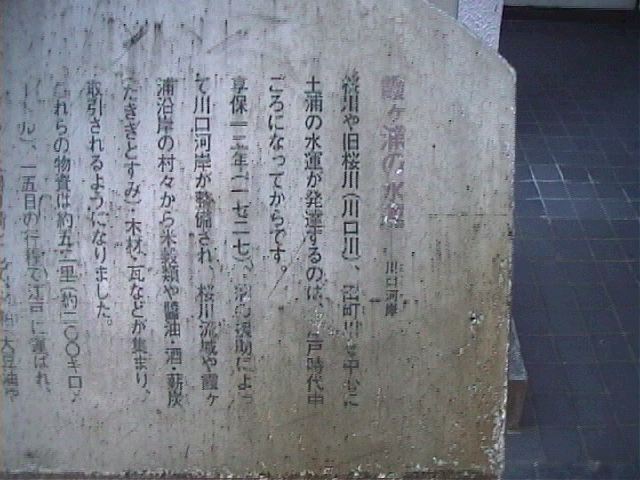 霞ヶ浦の水運
川口河岸
桜川や旧桜川(川口川)、田町川を中心に
土浦の水運が発達するのは、江戸時代中
ごろになってからです。
享保一二年(一七二七)、藩の援助によっ
て川口河岸が整備され、桜川流域や霞ヶ
浦沿岸の村々から米穀類や醬油・酒・薪炭
(たきぎとすみ)・木材、瓦などが集まり、
取引されるようになりました。
これらの物資は約五二里(約二〇〇キロメ
ートル)、一五日の行程で江戸に運ばれ、
大豆油や